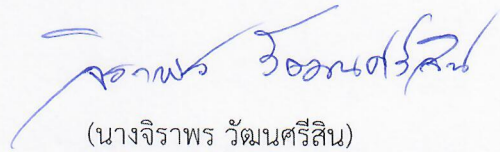 จิราพร วัฒนศรีสิน
(นางจิราพร วัฒนศรีสิน)